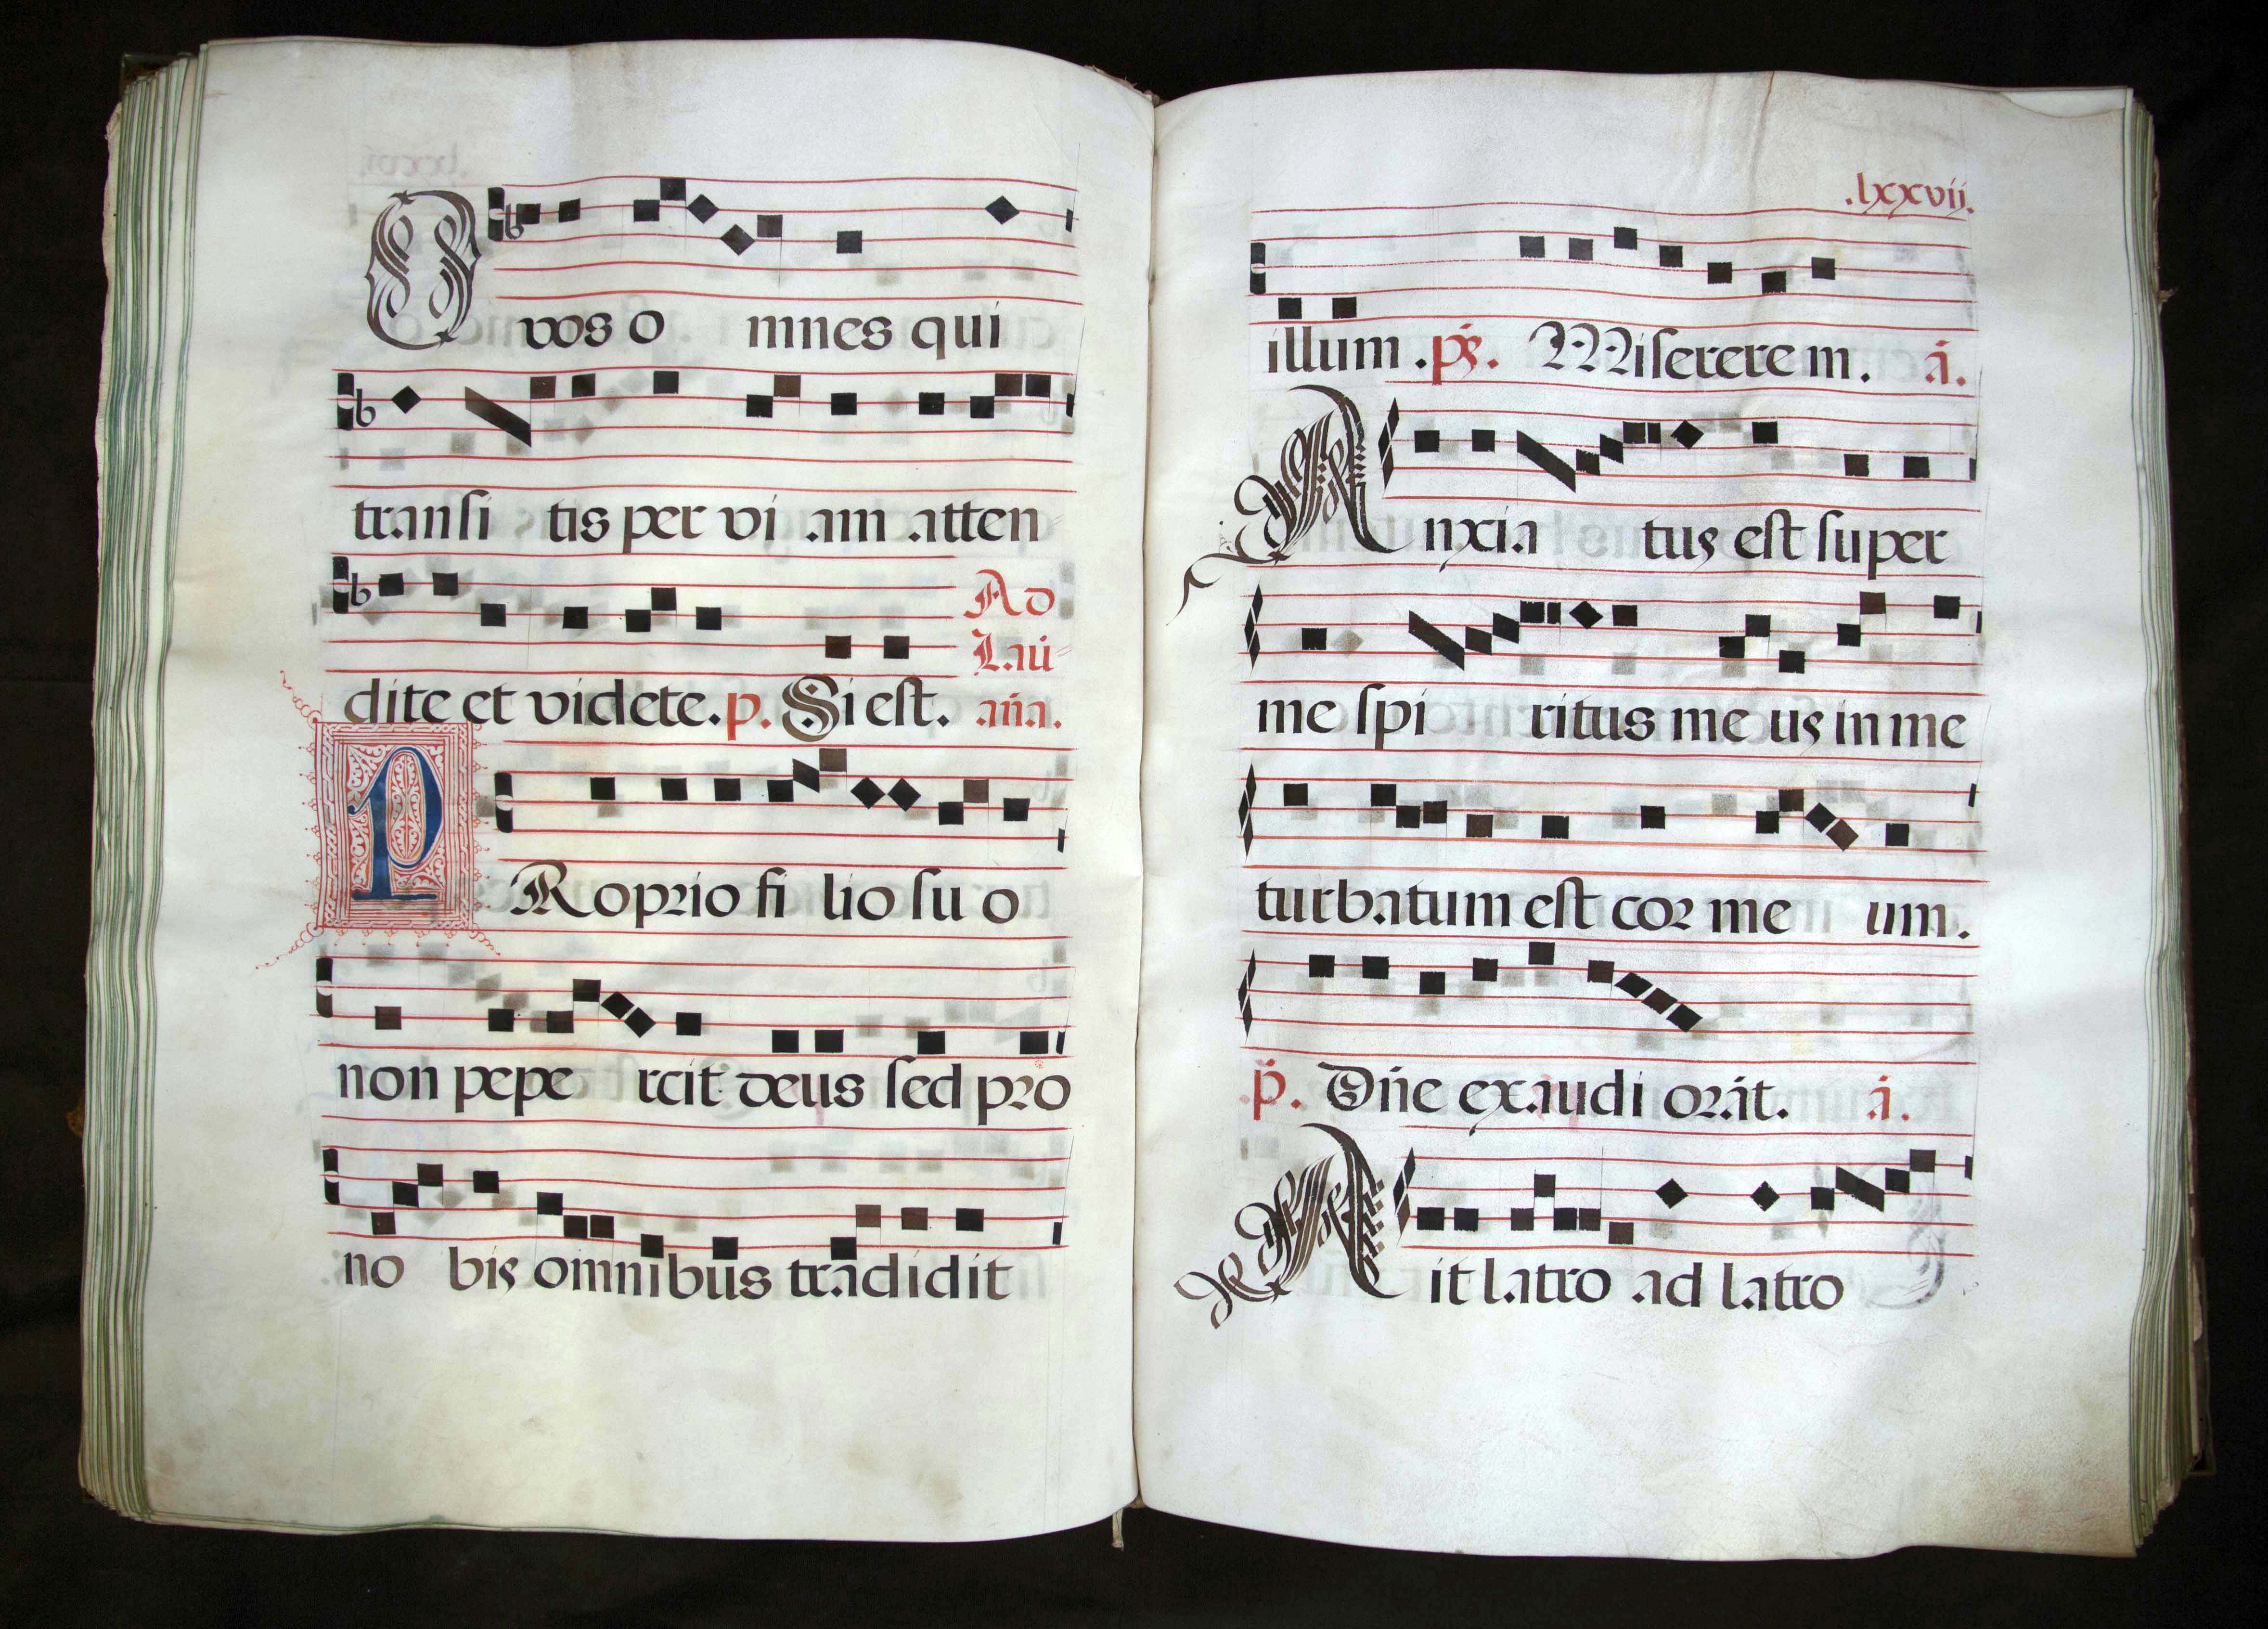 O vos o mnes qui
transi tis per vi am atten
dite et videte. p. Si est. Ad Lau aña.
PRoprio fi lio su o
non pepe rcit deus sed pro
no bis omnibus tradidit
.lxxvii.
illum. ps. Miserere m. á.
Anxia tus est super
me spi ritus me us in me
turbatum est cor me um.
p. Dñe exaudi orát. á.
Ait latro ad latro